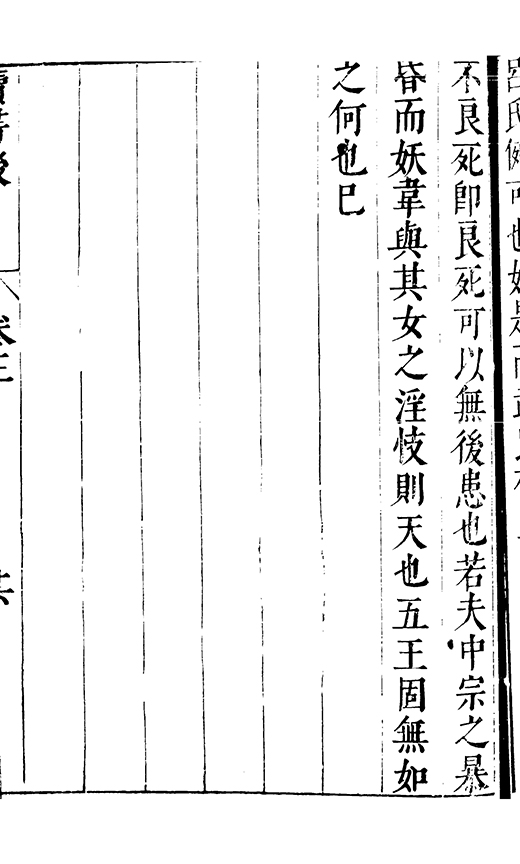 呂氏
不良死即良死可以無後患也若夫中宗之暴
昏而妖韋與其女之淫忮則天也五王固無如
之何也巳
讀書後
卷三